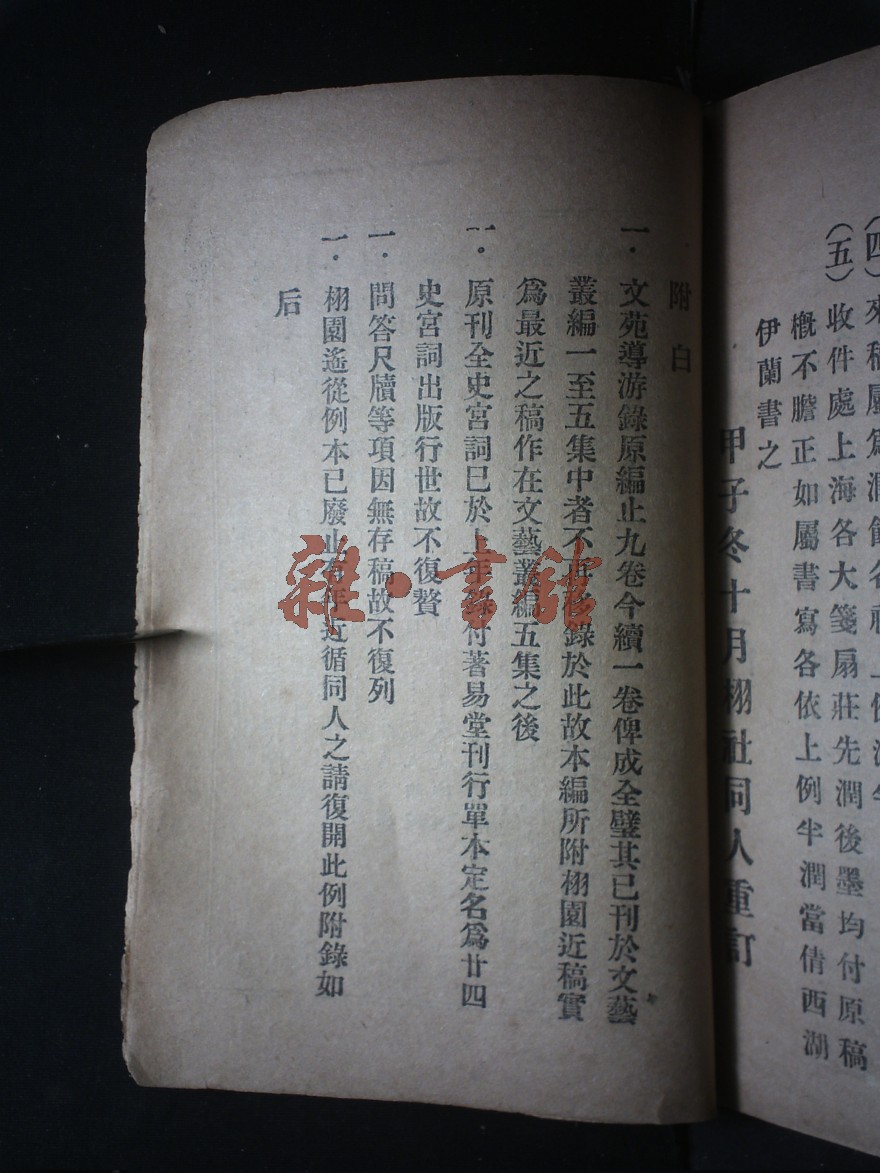 收件處上海各大箋扇莊先潤後墨均付原稿
概不謄正如屬書寫各依上例半潤當倩西湖
伊蘭書之
甲子冬十月栩社同人重訂
附白
一．文苑導游錄原編止九卷今續一卷俾成全璧其已刊於文藝
叢編一至五集中者不再錄於此故本編所附栩園近稿實
爲最近之稿作在文藝叢編五集之後
一．原刊全史宮詞已於上年付著易堂刊行單本定名爲廿四
史宮詞出版行世故不復贅
一．問答尺牘等項因無存稿故不復列
一．栩園遙從例本已廢止有年近循同人之請復開此例附錄如
后
雜·書館